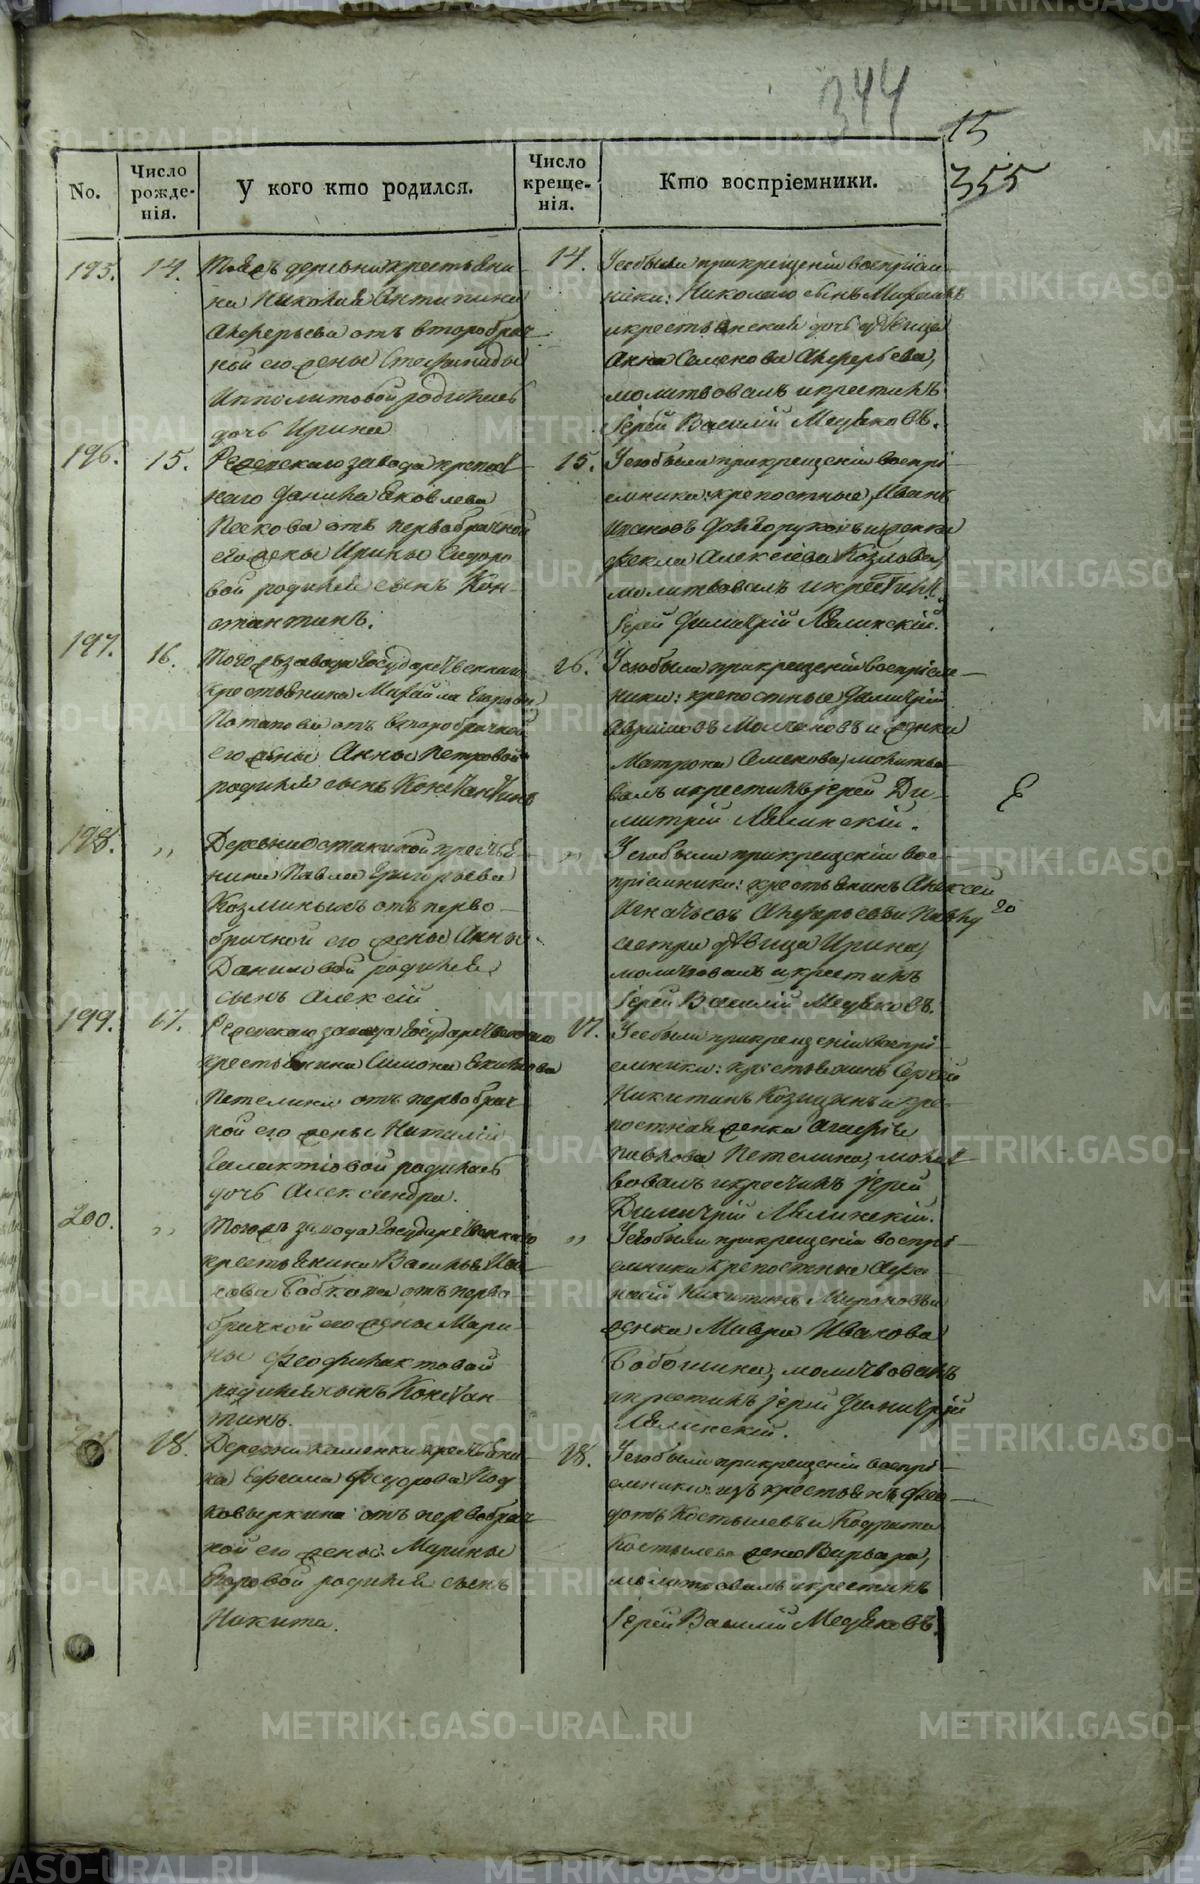 344
15
355
No.
Число рожде-нія.
У кого кто родился.
Число креще-нія.
Кто воспріемники.
195. 14.
Тояжъ деревни крестьяни-
на Николая Антипина
Анферьева отъ второбрач-
ной его жены Стефаниды
Ипполитовой родилась
дочь Ирина
14.
У сеѣ были при крещеніи воспріем-
ники: Николаго сынъ Михаилъ
и крестьянская дочь дѣвица
Анна Семенова Анферьева,
молитвовалъ и крестилъ
Іерей Василій Медяковъ.
196. 15.
Режевскаго завода крепост-
наго Данила Яковлева
Пескова отъ первобрачной
его жены Ирины Сидоро
вой родился сынъ Кон-
стантинъ.
15.
У сего были при крещеніи воспрі-
емники: крепостные Иванъ
и женка
Фекла Алексіева Козлова,
молитвовалъ и крестилъ
Іерей Димитрій Лялинскій.
197. 16.
Тогожъ завода Государственнаго
крестьянина Михайла Егорова
Потапова отъ второбрачной
его жены Анны Петровой
родился сынъ Константинъ
16.
У сего были при крещеніи воспріем-
ники: крепостные Димитрій
и женка
Матрона Семенова, молитво-
валъ и крестилъ іерей Ди-
митрій Лялинскій.
198. „
Деревни Останиной крестья
нина Павла Григорьева
Козминыхъ отъ перво-
брачной его жены Анны
Даниловой родился
сынъ Алексій
„
У сего были при крещеніи вос-
пріемники: крестьянинъ Алексей
Игнатьевъ Анферьевъ и Павлу
сестра дѣвица Ирина,
молитвовалъ и крестилъ
Іерей Василій Медяковъ.
199. 17.
Режевскаго завода Государственнаго
крестьянина Симона Екимова
Петелина отъ первобрач-
ной его жены Наталіи
Галактіовой родилась
дочь Александра.
17.
У сеѣ были при крещеніи воспрі-
емники: крестьянинъ Сергей
Никитинъ Козицынъ и кре-
постная женка Агафія
Павлова Петелина, молит
вовалъ и крестилъ іерей
Димитрій Лялинскій.
200. „
Тогожъ завода Государственнаго
крестьянина Василья
Бобкова отъ перво
брачной его жены Мари-
ны Феофилактовой
родился сынъ Констан-
тинъ.
„
У сего были при крещеніи воспрі-
емники крепостные Афа
насій Никитинъ Мироновъ и
женка Мавра Иванова
молитвовалъ
и крестилъ іерей Димитрій
Лялинскій.
18.
Деревни Каменки крестьяни-
на Ефима Федорова Под
ковыркина отъ первобрач-
ной его жены Марины
родился сынъ
Никита.
18.
У сего были при крещеніи воспрі-
емники: изъ крестьянъ Фео-
дотъ Костылевъ и Кодрата
Костылева жена Варвара,
молитвовалъ и крестилъ
Іерей Василій Медяковъ.
METRIKI.GASO-URAL.RU